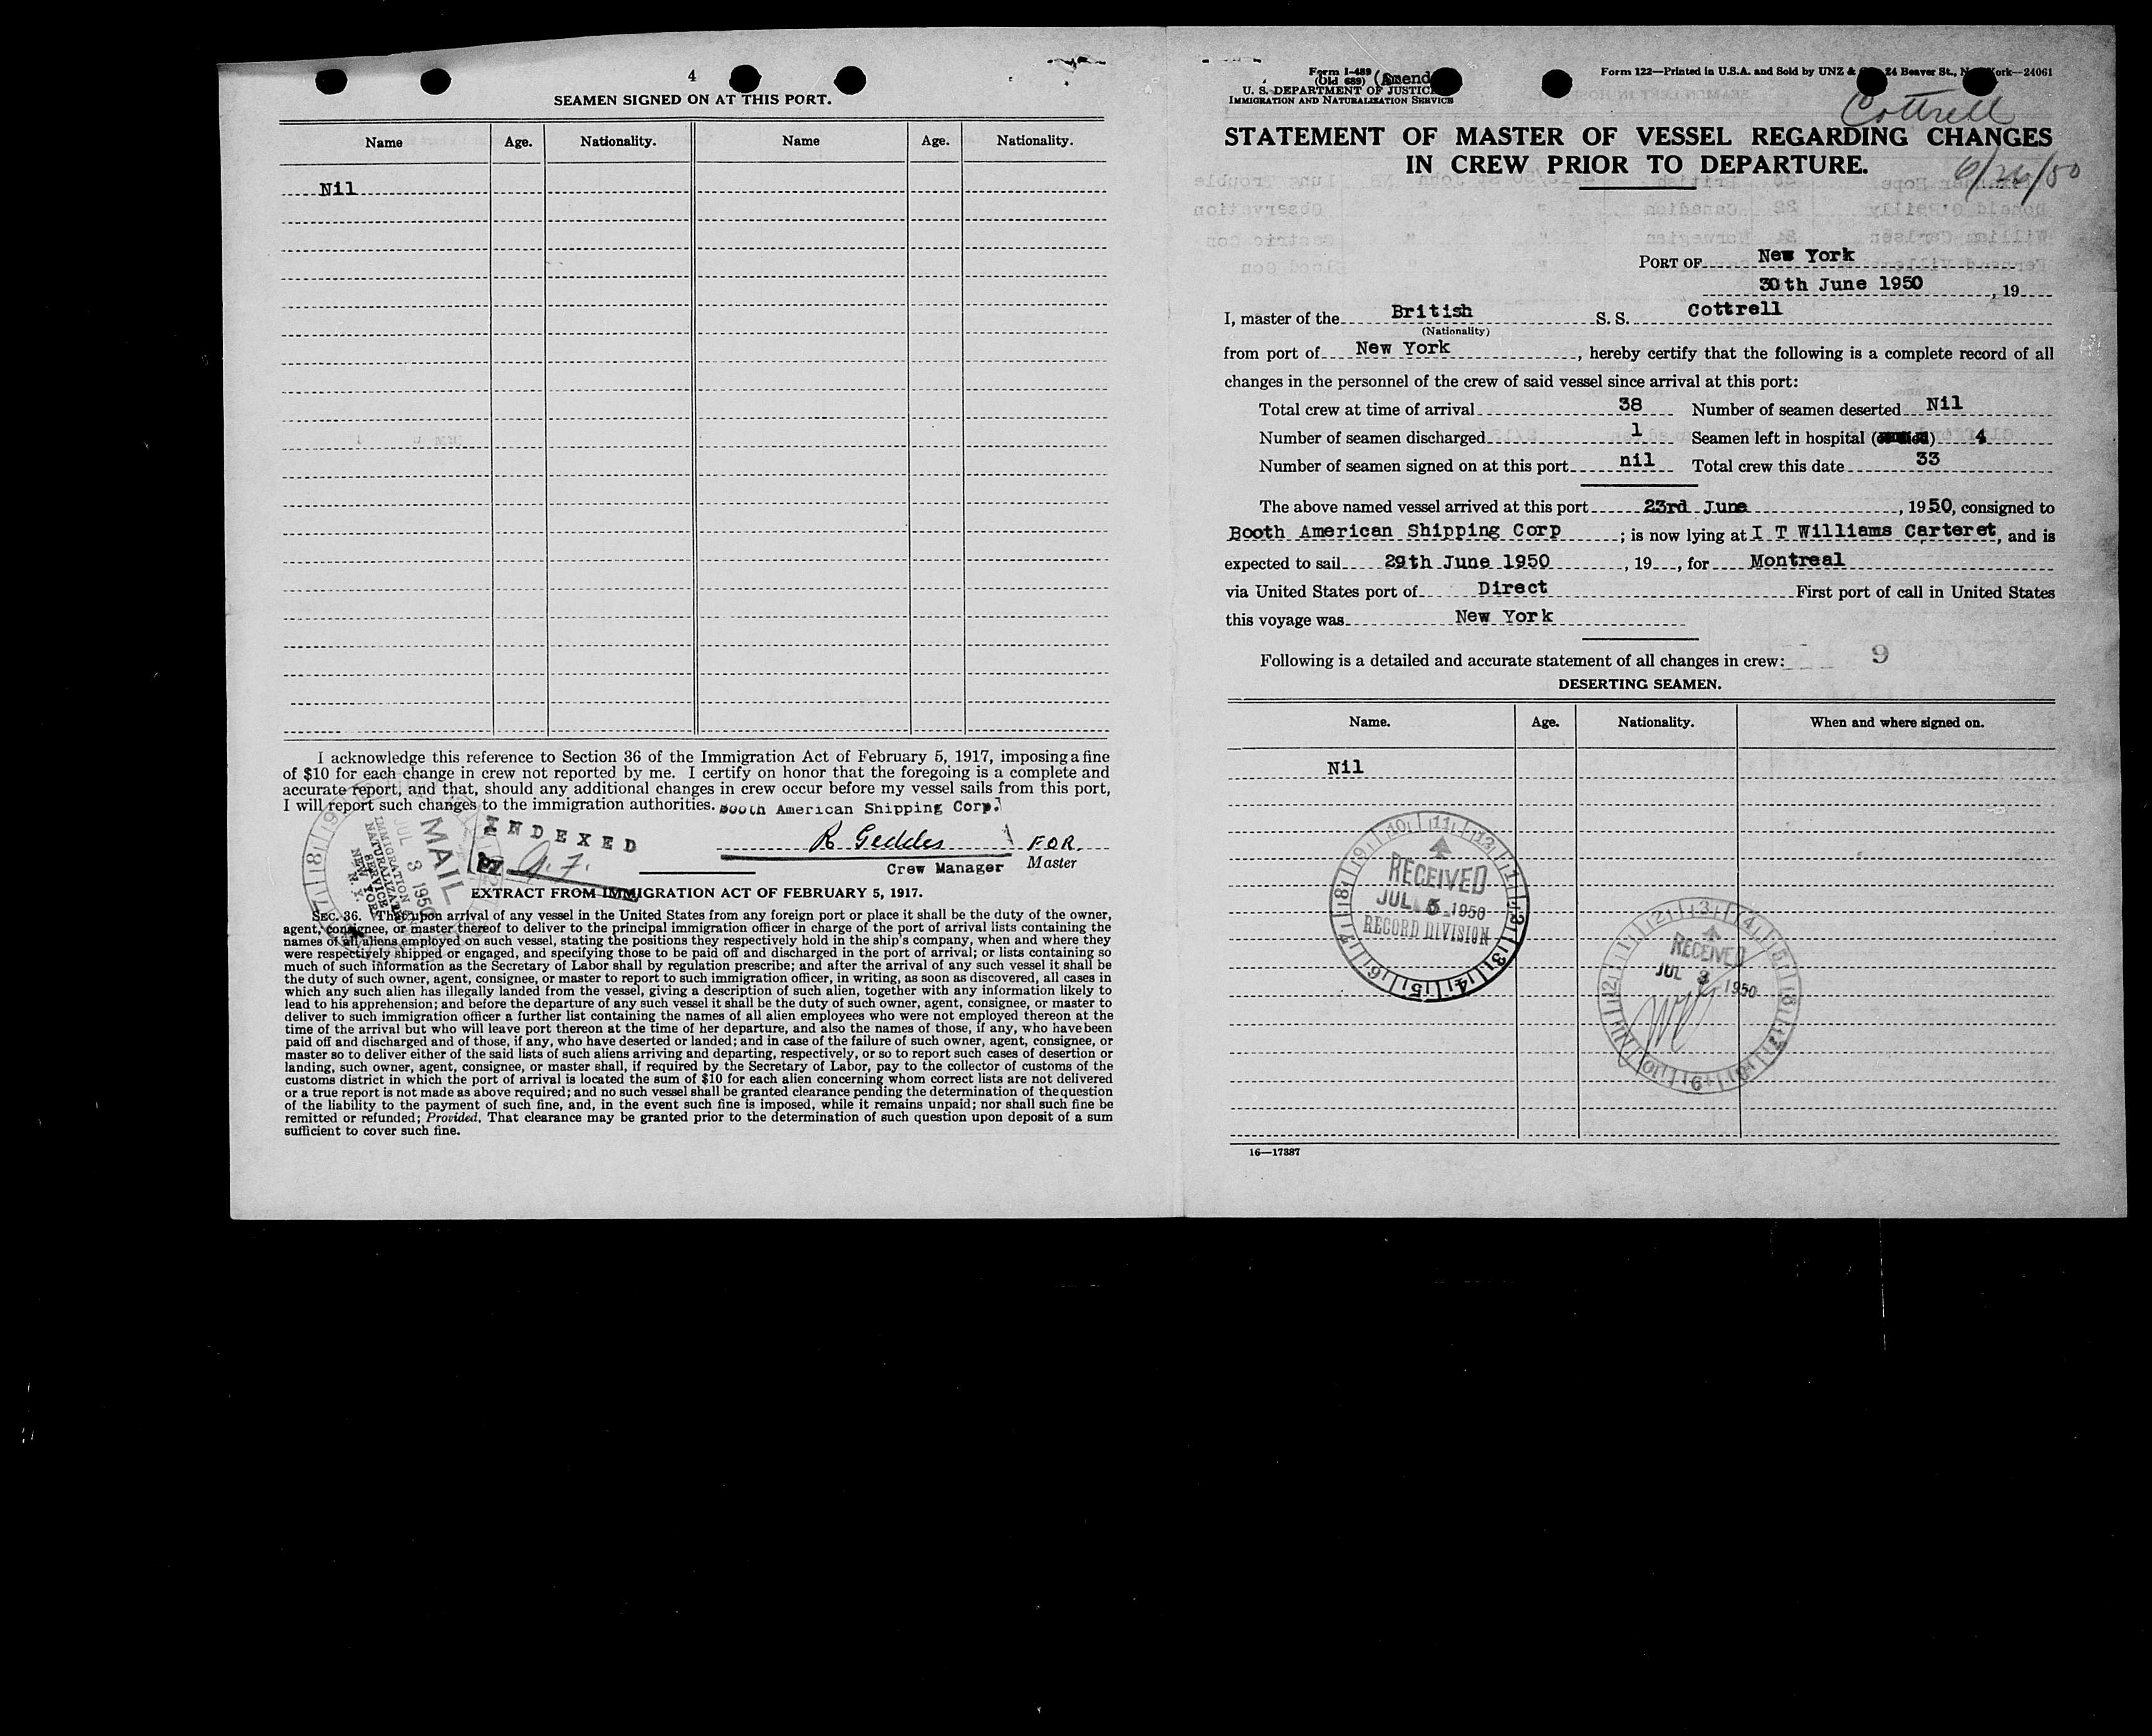 4
SEAMEN SIGNED ON AT THIS PORT.
Name Age. Nationality. Name Age. Nationality.
Nil
I acknowledge this reference to Section 36 of the Immigration Act of February 5, 1917, imposing a fine
of $10 for each change in crew not reported by me. I certify on honor that the foregoing is a complete and
accurate report, and that, should any additional changes in crew occur before my vessel sails from this port,
I will report such changes to the immigration authorities. Booth American Shipping Corp.
R Geddes FOR.
Crew Manager Master
INDEXED
BY
MAIL
JUL 3 1950
IMMIGRATION
NATURALIZATION
SERVICE
NEW YORK
N. Y.
EXTRACT FROM IMMIGRATION ACT OF FEBRUARY 5, 1917.
SEC. 36. That upon arrival of any vessel in the United States from any foreign port or place it shall be the duty of the owner,
agent, consignee, or master thereof to deliver to the principal immigration officer in charge of the port of arrival lists containing the
names of all aliens employed on such vessel, stating the positions they respectively hold in the ship's company, when and where they
were respectively shipped or engaged, and specifying those to be paid off and discharged in the port of arrival; or lists containing so
much of such information as the Secretary of Labor shall by regulation prescribe; and after the arrival of any such vessel it shall be
the duty of such owner, agent, consignee, or master to report to such immigration officer, in writing, as soon as discovered, all cases in
which any such alien has illegally landed from the vessel, giving a description of such alien, together with any information likely to
lead to his apprehension; and before the departure of any such vessel it shall be the duty of such owner, agent, consignee, or master to
deliver to such immigration officer a further list containing the names of all alien employees who were not employed thereon at the
time of the arrival but who will leave port thereon at the time of her departure, and also the names of those, if any, who have been
paid off and discharged and of those, if any, who have deserted or landed; and in case of the failure of such owner, agent, consignee, or
master so to deliver either of the said lists of such aliens arriving and departing, respectively, or so to report such cases of desertion or
landing, such owner, agent, consignee, or master shall, if required by the Secretary of Labor, pay to the collector of customs of the
customs district in which the port of arrival is located the sum of $10 for each alien concerning whom correct lists are not delivered
or a true report is not made as above required; and no such vessel shall be granted clearance pending the determination of the question
of the liability to the payment of such fine, and, in the event such fine is imposed, while it remains unpaid; nor shall such fine be
remitted or refunded; Provided, That clearance may be granted prior to the determination of such question upon deposit of a sum
sufficient to cover such fine.
Form I-489
(Old 689) (Amend
U. S. DEPARTMENT OF JUSTICE
IMMIGRATION AND NATURALIZATION SERVICE
Form 122—Printed in U.S.A. and Sold by UNZ & 24 Beaver St., New York—24061
Cottrell
STATEMENT OF MASTER OF VESSEL REGARDING CHANGES
IN CREW PRIOR TO DEPARTURE.
6/26/50
PORT OF New York
30th June 1950, 19
I, master of the British S. S. Cottrell
(Nationality)
from port of New York, hereby certify that the following is a complete record of all
changes in the personnel of the crew of said vessel since arrival at this port:
Total crew at time of arrival 38 Number of seamen deserted Nil
Number of seamen discharged 1 Seamen left in hospital ( ) 4
Number of seamen signed on at this port nil Total crew this date 33
The above named vessel arrived at this port 23rd June, 1950, consigned to
Booth American Shipping Corp; is now lying at I T Williams Carteret, and is
expected to sail 29th June 1950, 19, for Montreal
via United States port of Direct First port of call in United States
this voyage was New York
Following is a detailed and accurate statement of all changes in crew: 9
DESERTING SEAMEN.
Name. Age. Nationality. When and where signed on.
Nil
RECEIVED
JUL 5 1950
RECORD DIVISION
RECEIVED
JUL 3 1950
16—17387